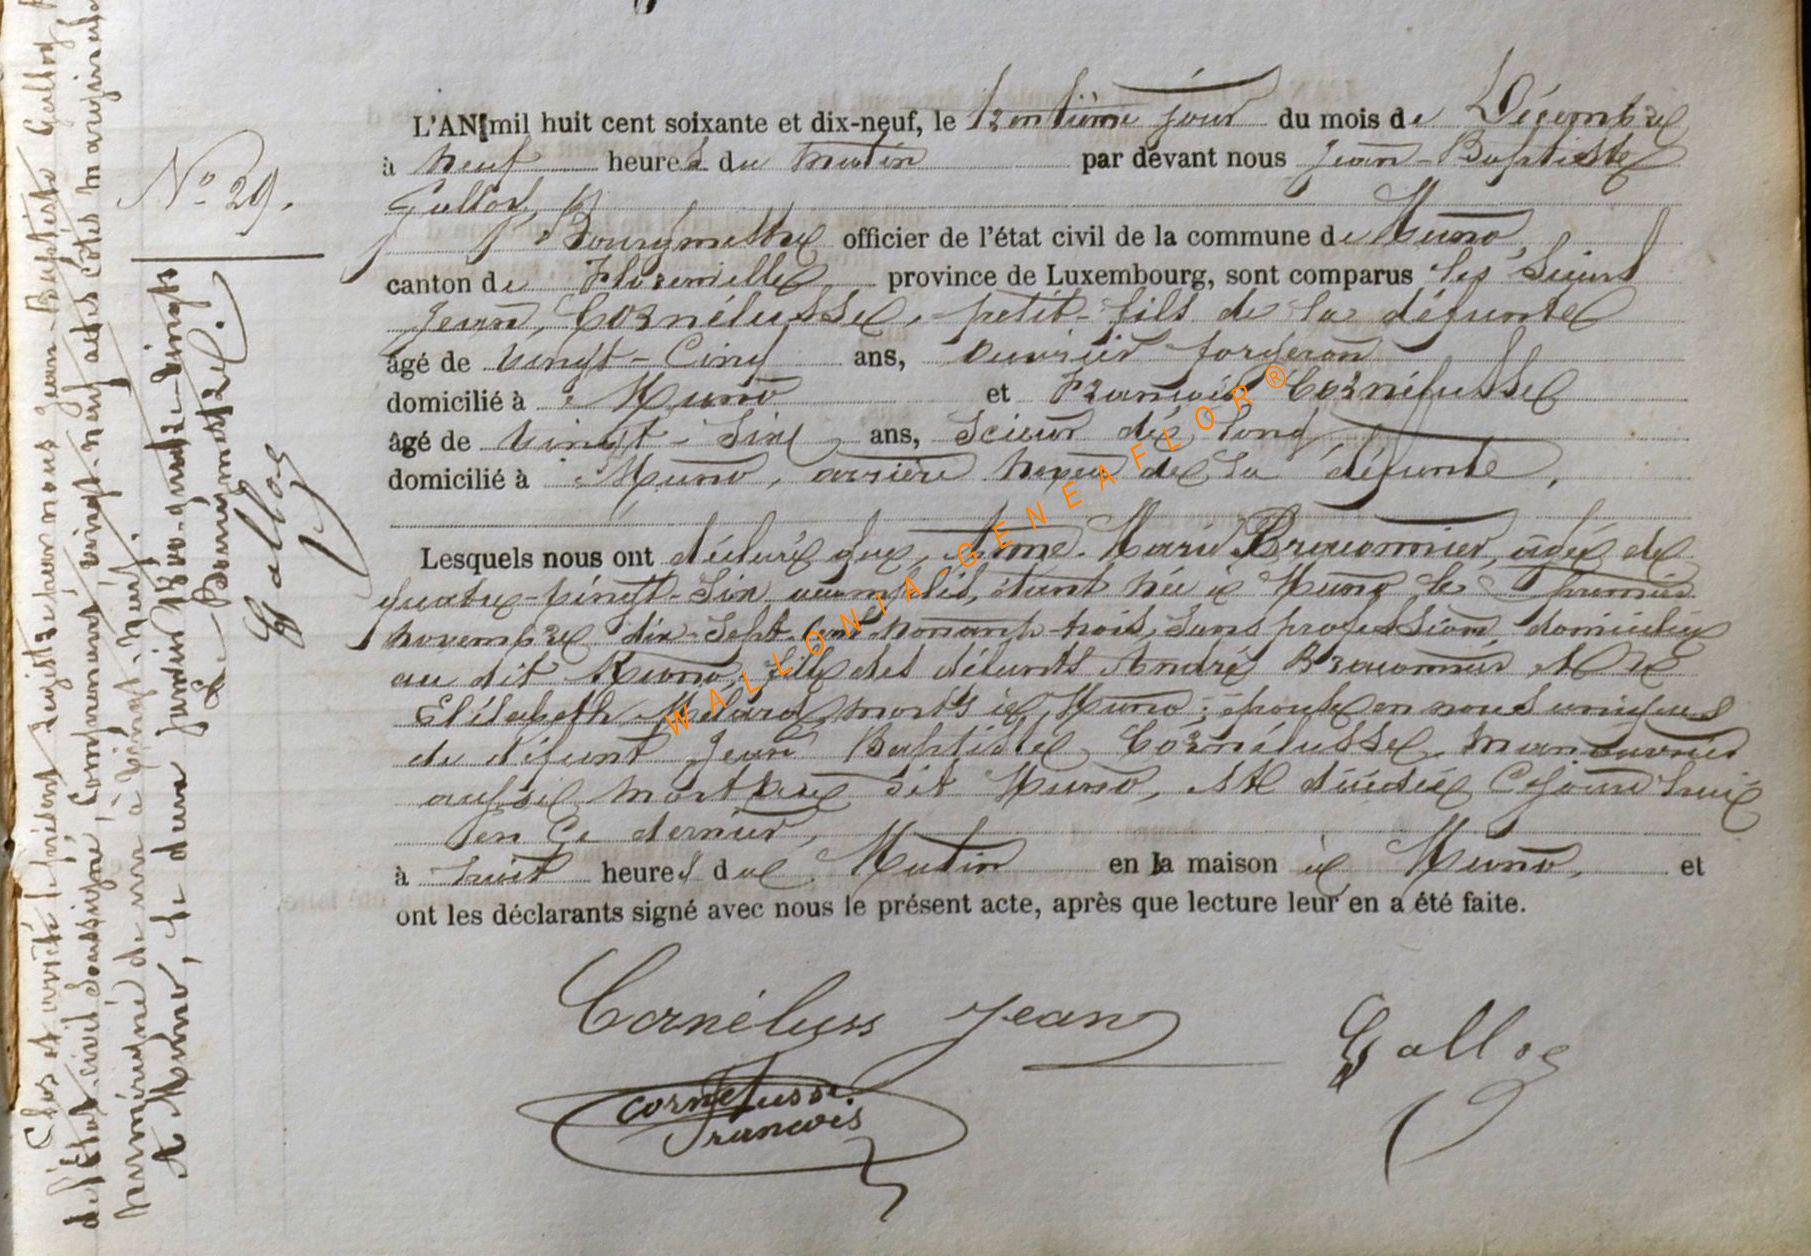 L'AN mil huit cent soixante et dix-neuf, le trentième jour du mois de Décembre
à neuf heures du matin par devant nous Jean-Baptiste
Galloy
Bourgmestre officier de l'état civil de la commune de Muno,
canton de Florenville province de Luxembourg, sont comparus les Sieurs
Jean Cornélusse, petit-fils de la défunte
âgé de vingt-cinq ans, ouvrier forgeron
domicilié à Muno et François Cornélusse
âgé de vingt-six ans, scieur de long
domicilié à Muno, arrière neveu de la défunte,
Lesquels nous ont déclaré que, Anne-Marie Braconnier, agée de
quatre-vingt-six accomplis, étant née à Muno le premier
novembre dix-sept-cent nonante-trois, sans profession domiciliée
au dit Muno, fille des défunts André Braconnier et de
Elisabeth morts à Muno; épouse en
de défunt Jean Baptiste Cornélusse, manouvrier
aussi mort au dit Muno, est décédée Cejourd'hui
en ce dernier,
à huit heures du Matin en la maison à Muno, et
ont les déclarants signé avec nous le présent acte, après que lecture leur en a été faite.
Cornéluss Jean
Galloy
Cornelusse
Francois
No 29.
Clos et arrêté le présent registre par nous Jean-Baptiste Galloy
de l'état-civil soussigné, comprenant vingt-neuf actes cotés
numérotés de un à vingt-neuf.
A Muno, le deux janvier 1800-quatre-vingts
Le Bourgmestre.
Galloy
WALLONIA-GENEAFLOR®